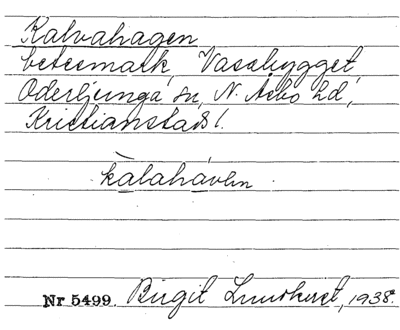 Kalvahagen
betesmark, Vasabygget,
Oderljunga sn, N. Åsbo hd,
Kristianstads l.
kàlahávhn
Nr 5499. Birgit Lundkvist, 1938.